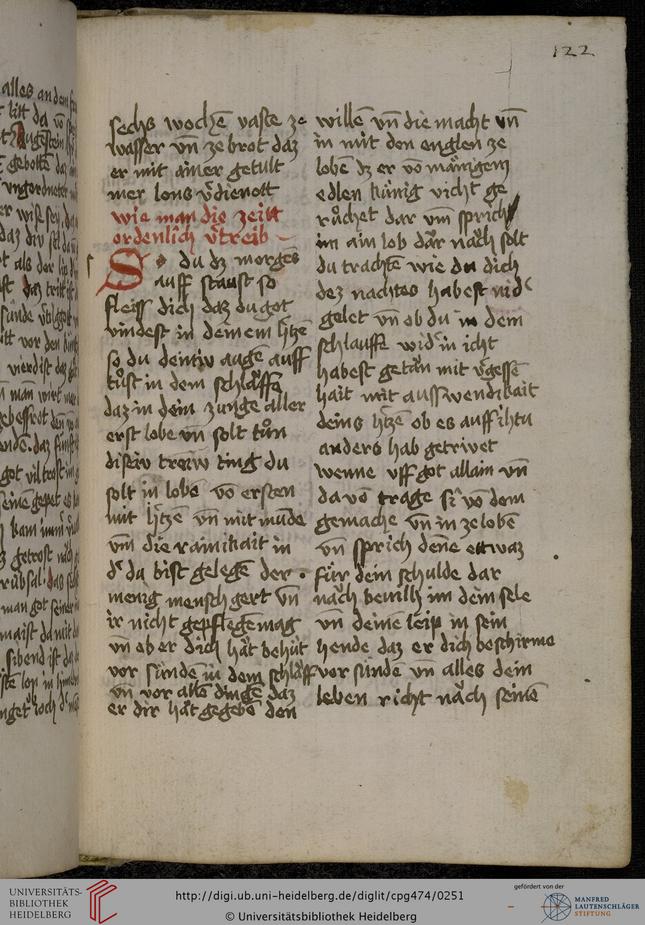 122
sechs wochē vaste ze
wasser vn̄ ze brot daz
er mit ainer getult
mer lons v̄dienott
wie man die zeitt
ordenlich v̄treib
So du dz morgēs
auff staust so
fleiss dich daz du got
vindest in deinem h̄tzē
so du deniw augē auff
tůst in dem schlāffē
daz in dein zunge aller
erst lobe vn̄ solt tůn
disiw treiw ting du
solt in lobē vō ersten
mit h̄tzē vn̄ mit mūde
vm̄ die rainikait in
dʼ du bist gelegē der
menig mensch gert vn̄
ir nicht gepflegē mag
vn̄ ob er dich hāt behůt
vor sūndē in dem schlāff
vn̄ vor allē dingē daz
er dir hāt gegebē den
willē vn̄ die macht vn̄
in mit den englen ze
lobē dz er vō mānigem
edlen kūnig nicht ge
růchet dar vm̄ sprich
im ain lob dār nāch solt
du trachtē wie du dich
dez nachtes habest nidʼ
gelet vn̄ ob du in dem
schlauffe wid̄ in icht
habest getān mit v̄gessē
hait mit ausswendikait
deins h̄tzē ob es auff ihtu
anders hab getrivet
wenne vff got allain vn̄
da vō trage vō dem
gemache vn̄ in ze lobē
vn̄ sprich dēne ettwaz
fūr dein schulde dar
nāch bevilh im dein sele
vn̄ deinē leip in sein
hende daz er dich beschirme
vor sūndē vn̄ alles dein
leben richt nāch seinē
UNIVERSITÄTS-
BIBLIOTHEK
HEIDELBERG
http://digi.ub.uni-heidelberg.de/diglit/cpg474/0251
© Universitätsbibliothek Heidelberg
gefördert von der
MANFRED
LAUTENSCHLÄGER
STIFTUNG